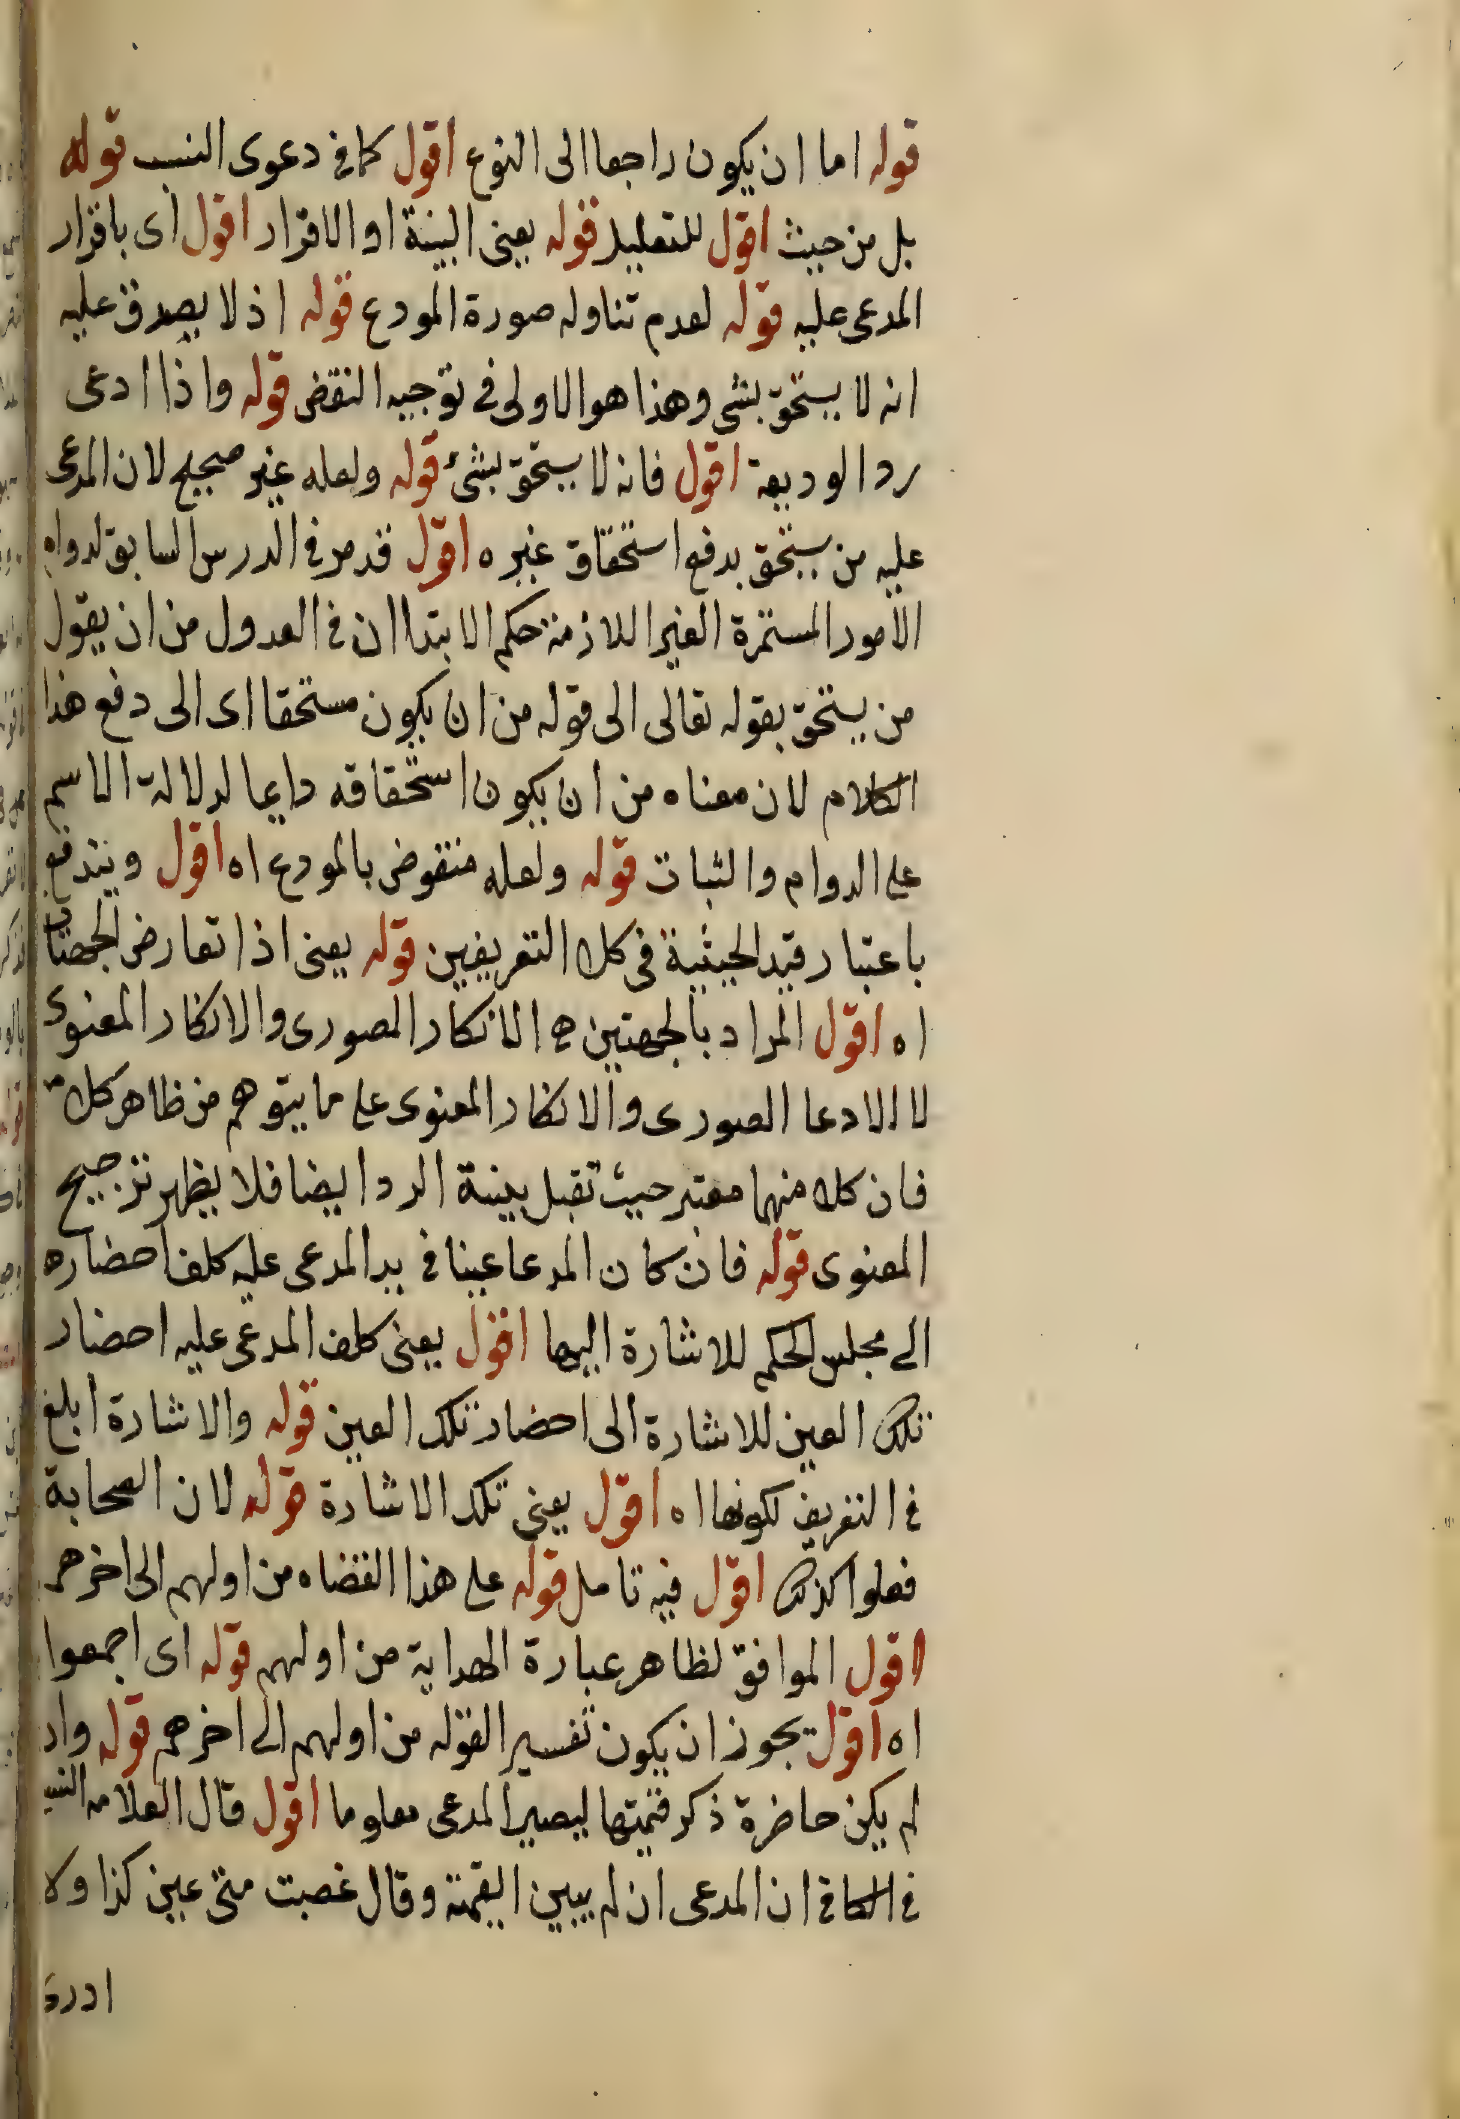 قوله اما ان يكون راجعا الى النوع اقول كما في دعوى النسب قوله
بل من حيث اقول للتعليل قوله يعنى البينة او الاقرار اقول اى باقرار
المدعى عليه قوله لعدم تناوله صورة المودع قوله اذ لا يصدق عليه
انه لا يستحق بشى وهذا هو الاولى فى توجيه النقض قوله واذا ادعى
رد الوديعة اقول فانه لا يستحق بشئ قوله ولعله غير صحيح لان المدعى
عليه من يستحق بدفع استحقاق غيره اقول قد مر في الدرس السابق لدوام
الامور المستمرة الغير اللازمة حكم الابتدا ان في العدول من ان يقول
من يستحق بقوله تعالى الى قوله من ان يكون مستحقا اى الى دفع هذا
الكلام لان معناه من ان يكون استحقاقه دايما لدلالة الاسم
على الدوام والثبات قوله ولعله منقوض بالمودع اه اقول ويندفع
باعتبار قيد الحيثية فى كل التعريفين قوله يعنى اذا تعارض الجهتان
اه اقول المراد بالجهتين هو الانكار الصورى والانكار المعنوى
لا الادعا الصورى والانكار المعنوى على ما يتوهم من ظاهر كلامه
فان كلا منهما معتبر حيث تقبل بينة الرد ايضا فلا يظهر ترجيح
المعنوى قوله فان كان المدعا عينا فى يد المدعى عليه كلف احضاره
الى مجلس الحكم للاشارة اليها اقول يعنى كلف المدعى عليه احضار
تلك العين للاشارة الى احضار تلك العين قوله والاشارة ابلغ
في التعريف لكونها اه اقول يعنى تلك الاشارة قوله لان الصحابة
فعلوا كذلك اقول فيه تامل قوله على هذا القضاه من اولهم الى اخرهم
اقول الموافق لظاهر عبارة الهداية من اولهم قوله اى اجمعوا
اه اقول يجوز ان يكون تفسيرا لقوله من اولهم الى اخرهم قوله وان
لم يكن حاضرة ذكر قيمتها ليصير المدعى معلوما اقول قال العلامه النسفى
في الكافى ان المدعى ان لم يبين القيمة وقال غصبت منى عين كذا ولا
ادرى